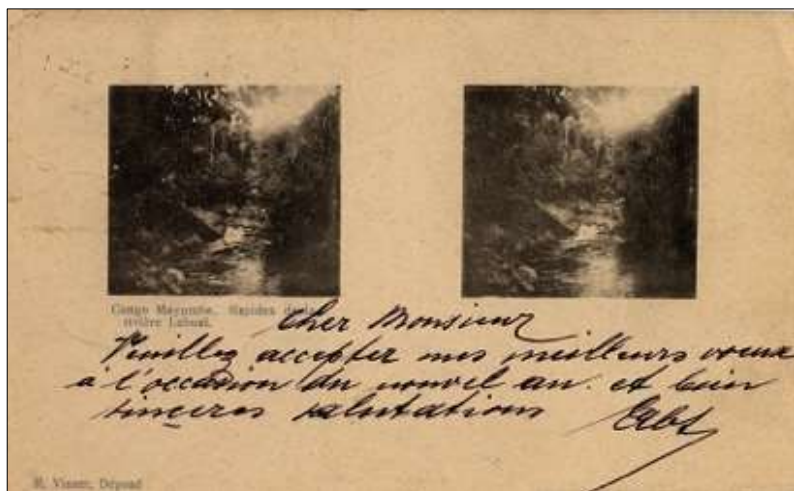 Congo Mayumbe. Rapides de la
rivière
Cher Monsieur
Veuillez accepter mes meilleurs voeux
à l'occasion du nouvel an. et bien
sincères salutations